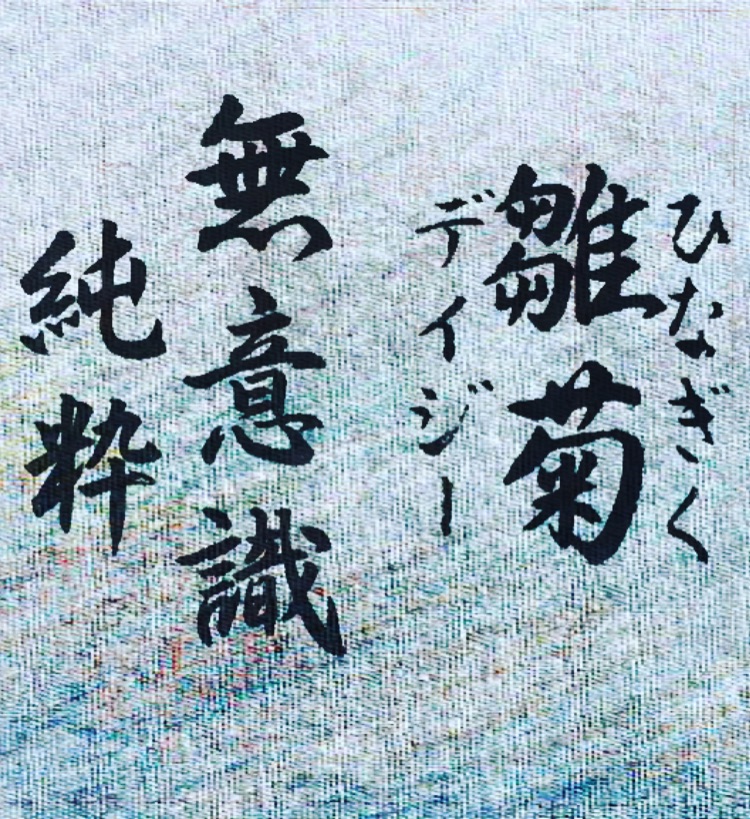 ひなぎく
雛菊
デイジー
無意識
純粋